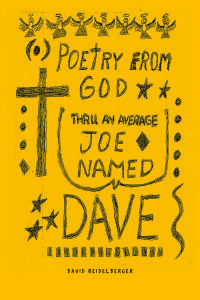 POETRY FROM
GOD
THRU AN AVERAGE
JOE
NAMED
DAVE
DAVID HEIDELBERGER